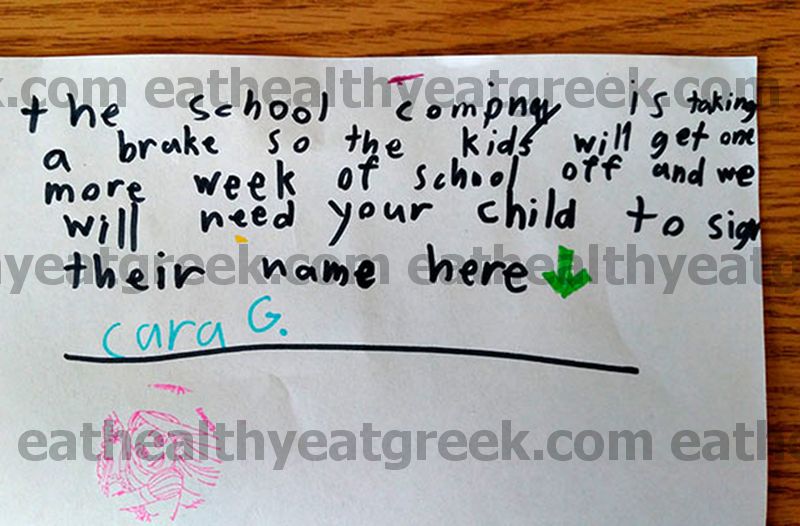 the school compny is taking
a brake so the kids will get one
more week of school off and we
will need your child to sign
their name here
cara G.
eathealthyeatgreek.com
eathealthyeatgreek.com
eathealthyeatgreek.com